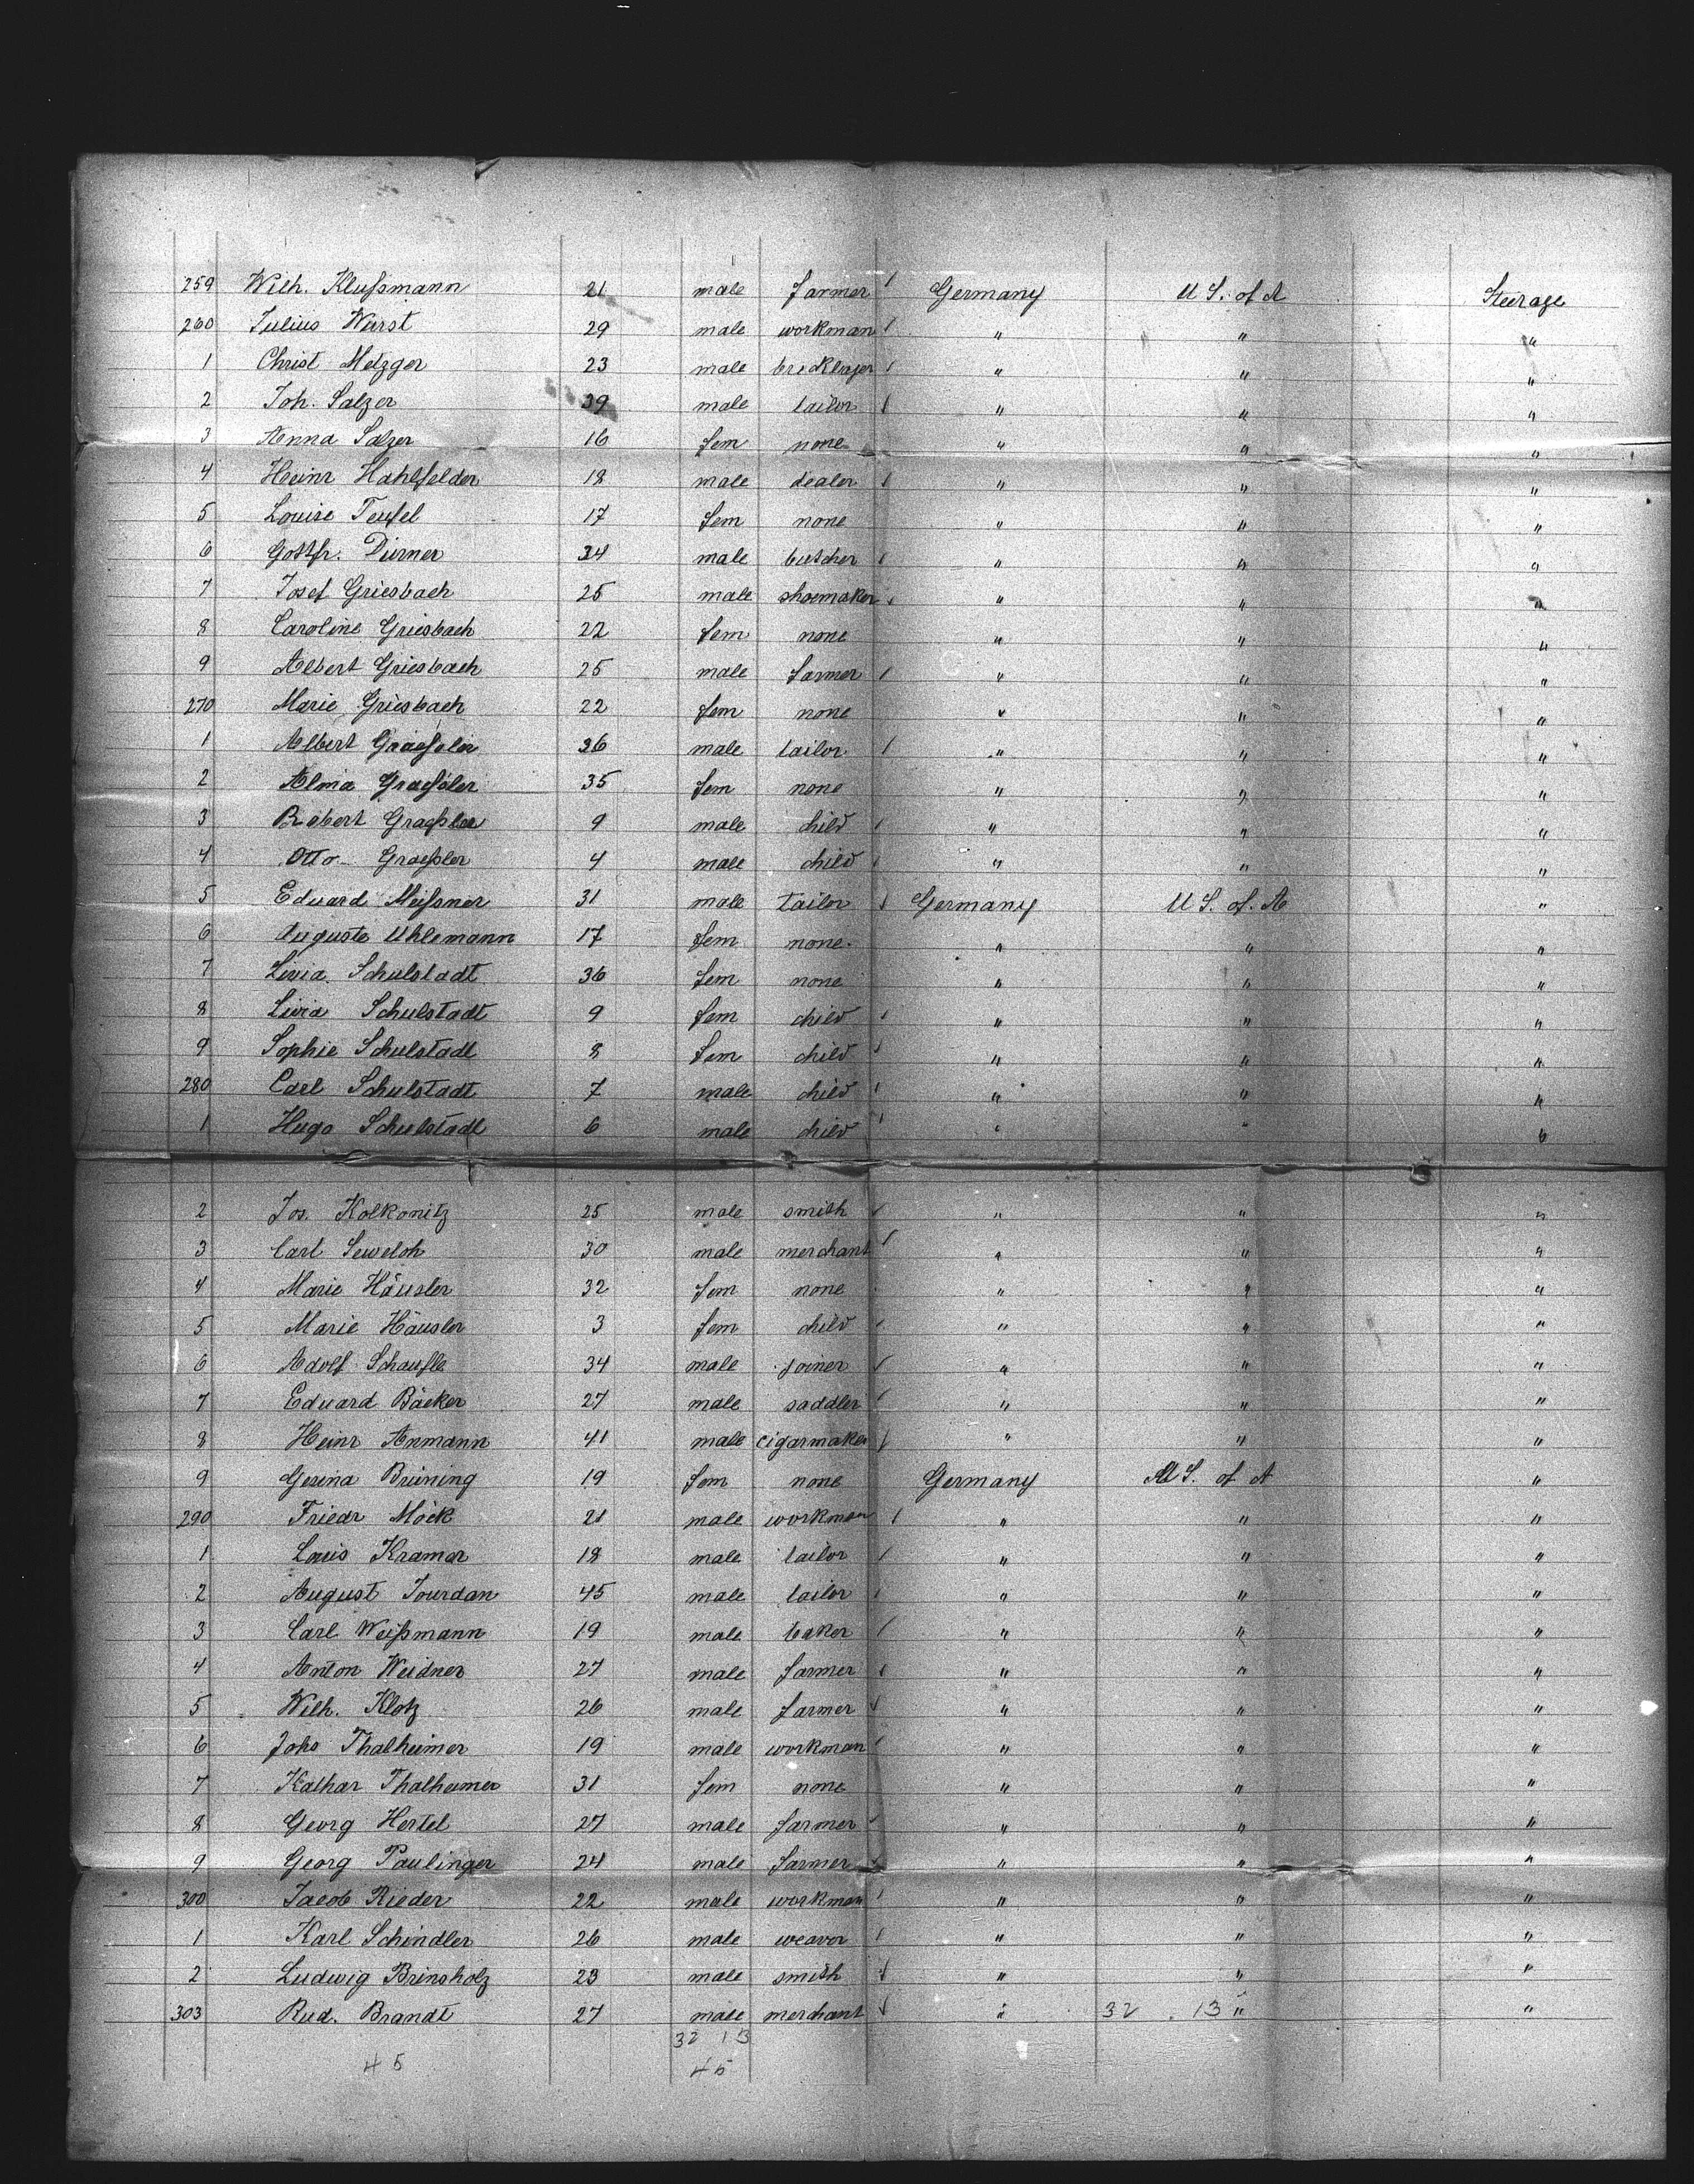 259 Wilh. Klußmann 21 male farmer Germany U S. of A Steerage
260 Julius Wurst 29 male workman " " "
1 Christ Metzger 23 male bricklayer " " "
2 Joh. Salzer 39 male tailor " " "
3 Anna Salzer 16 fem none " " "
4 Heinr Hahlfelder 18 male dealer " " "
5 Louise Teufel 17 fem none " " "
6 Gottfr. Dürner 34 male butcher " " "
7 Josef Griesbach 25 male shoemaker " " "
8 Caroline Griesbach 22 fem none " " "
9 Albert Griesbach 25 male farmer " " "
270 Marie Griesbach 22 fem none " " "
1 Albert Graeßler 36 male tailor " " "
2 Alma Graeßler 35 fem none " " "
3 Robert Graeßler 9 male child " " "
4 Otto Graeßler 4 male child " " "
5 Eduard Meißner 31 male tailor Germany U S. of. A "
6 Auguste Uhlemann 17 fem none " " "
7 Livia Schulstadt 36 fem none " " "
8 Livia Schulstadt 9 fem child " " "
9 Sophie Schulstadt 8 fem child " " "
280 Carl Schulstadt 7 male child " " "
1 Hugo Schulstadt 6 male child " " "
2 Jos. Kolkonitz 25 male smith " " "
3 Carl 30 male merchant " " "
4 Marie Häusler 32 fem none " " "
5 Marie Häusler 3 fem child " " "
6 Adolf Schaufle 34 male joiner " " "
7 Eduard Bäcker 27 male saddler " " "
8 Heinr Anmann 41 male cigarmaker " " "
9 Gesina Brüning 19 fem none Germany U S. of A "
290 Friedr Möck 21 male workman " " "
1 Louis Kramer 18 male tailor " " "
2 August Jourdan 45 male tailor " " "
3 Carl Weißmann 19 male baker " " "
4 Anton Weidner 27 male farmer " " "
5 Wilh. Klotz 26 male farmer " " "
6 Johs Thalheimer 19 male workman " " "
7 Kathar Thalheimer 31 fem none " " "
8 Georg Hertel 27 male farmer " " "
9 Georg Paulinger 24 male farmer " " "
300 Jacob Rieder 22 male workman " " "
1 Karl Schindler 26 male weaver " " "
2 Ludwig Brinsholz 23 male smith " " "
303 Rud. Brandt 27 male merchant " 32 13 " "
32 13
45 45